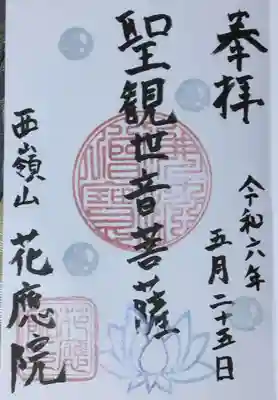 奉拝
令和六年
五月二十五日
聖観世音菩薩
西嶺山
花應院